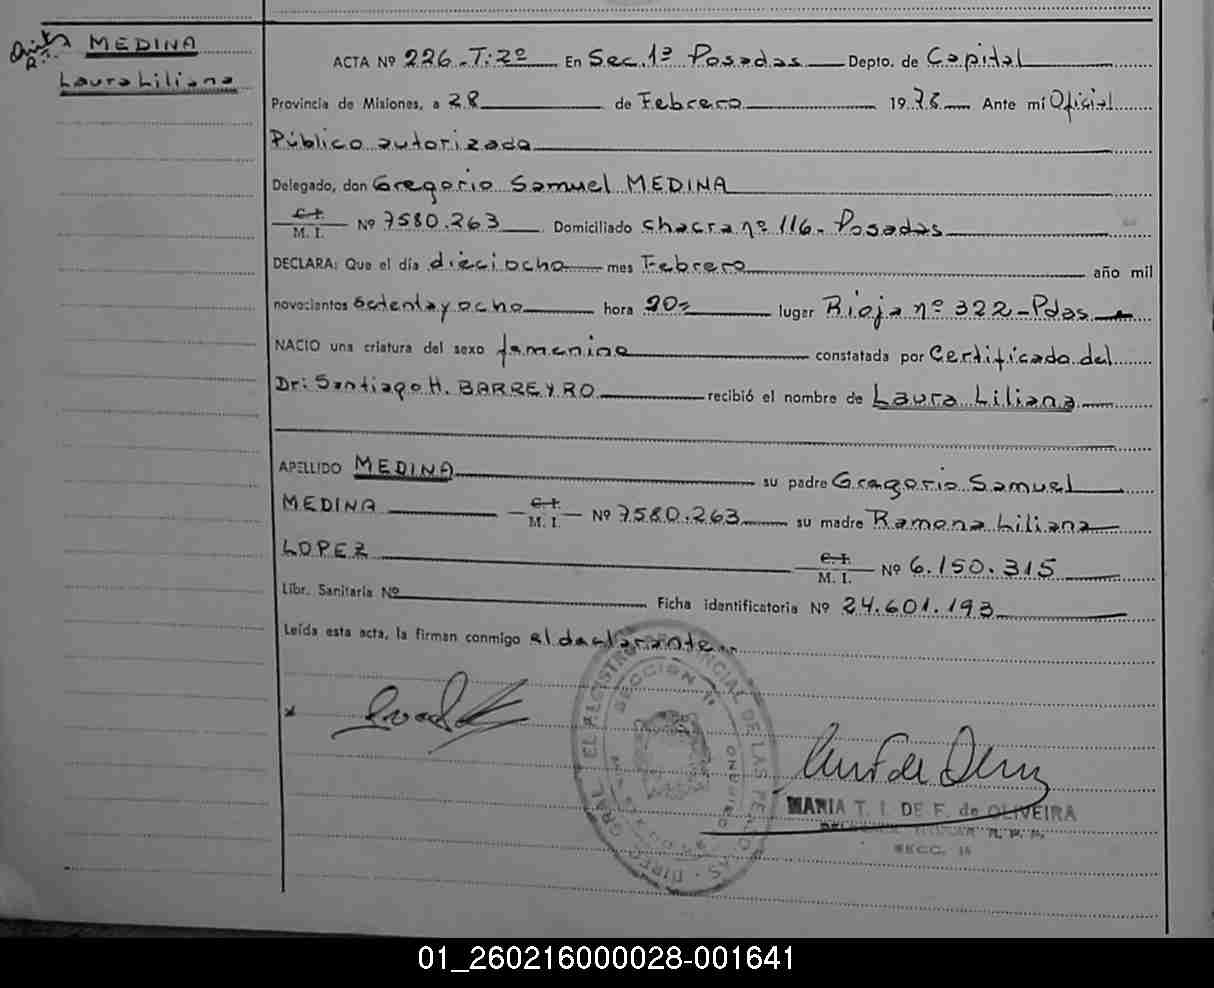 MEDINA
Laura Liliana
ACTA Nº 226.T:2º En Sec. 1ª Posadas Depto. de Capital
Provincia de Misiones, a 28 de Febrero 1978 Ante mí Oficial
Público autorizada
Delegado, don Gregorio Samuel MEDINA
C.I.
M. I. Nº 7580.263 Domiciliado chacra nº 116. Posadas
DECLARA: Que el día dieciocho mes Febrero año mil
novecientos setenta y ocho hora 20= lugar Rioja nº 322-Pdas
NACIO una criatura del sexo femenino constatada por Certificado del
Dr: Santiago H. BARREYRO recibió el nombre de Laura Liliana
APELLIDO MEDINA su padre Gregorio Samuel
MEDINA C.I. M. I. Nº 7580.263 su madre Ramona Liliana
LOPEZ C.I. M. I. Nº 6.150.315
Libr. Sanitaria Nº Ficha identificatoria Nº 24.601.193
Leída esta acta, la firman conmigo el declarante..
DIREC GRAL EL REGISTRO PROVINCIAL DE LAS PERSONAS
SECCION 1ª
MARIA T. I. DE F. de OLIVEIRA
SECC. 1ª
01_260216000028-001641